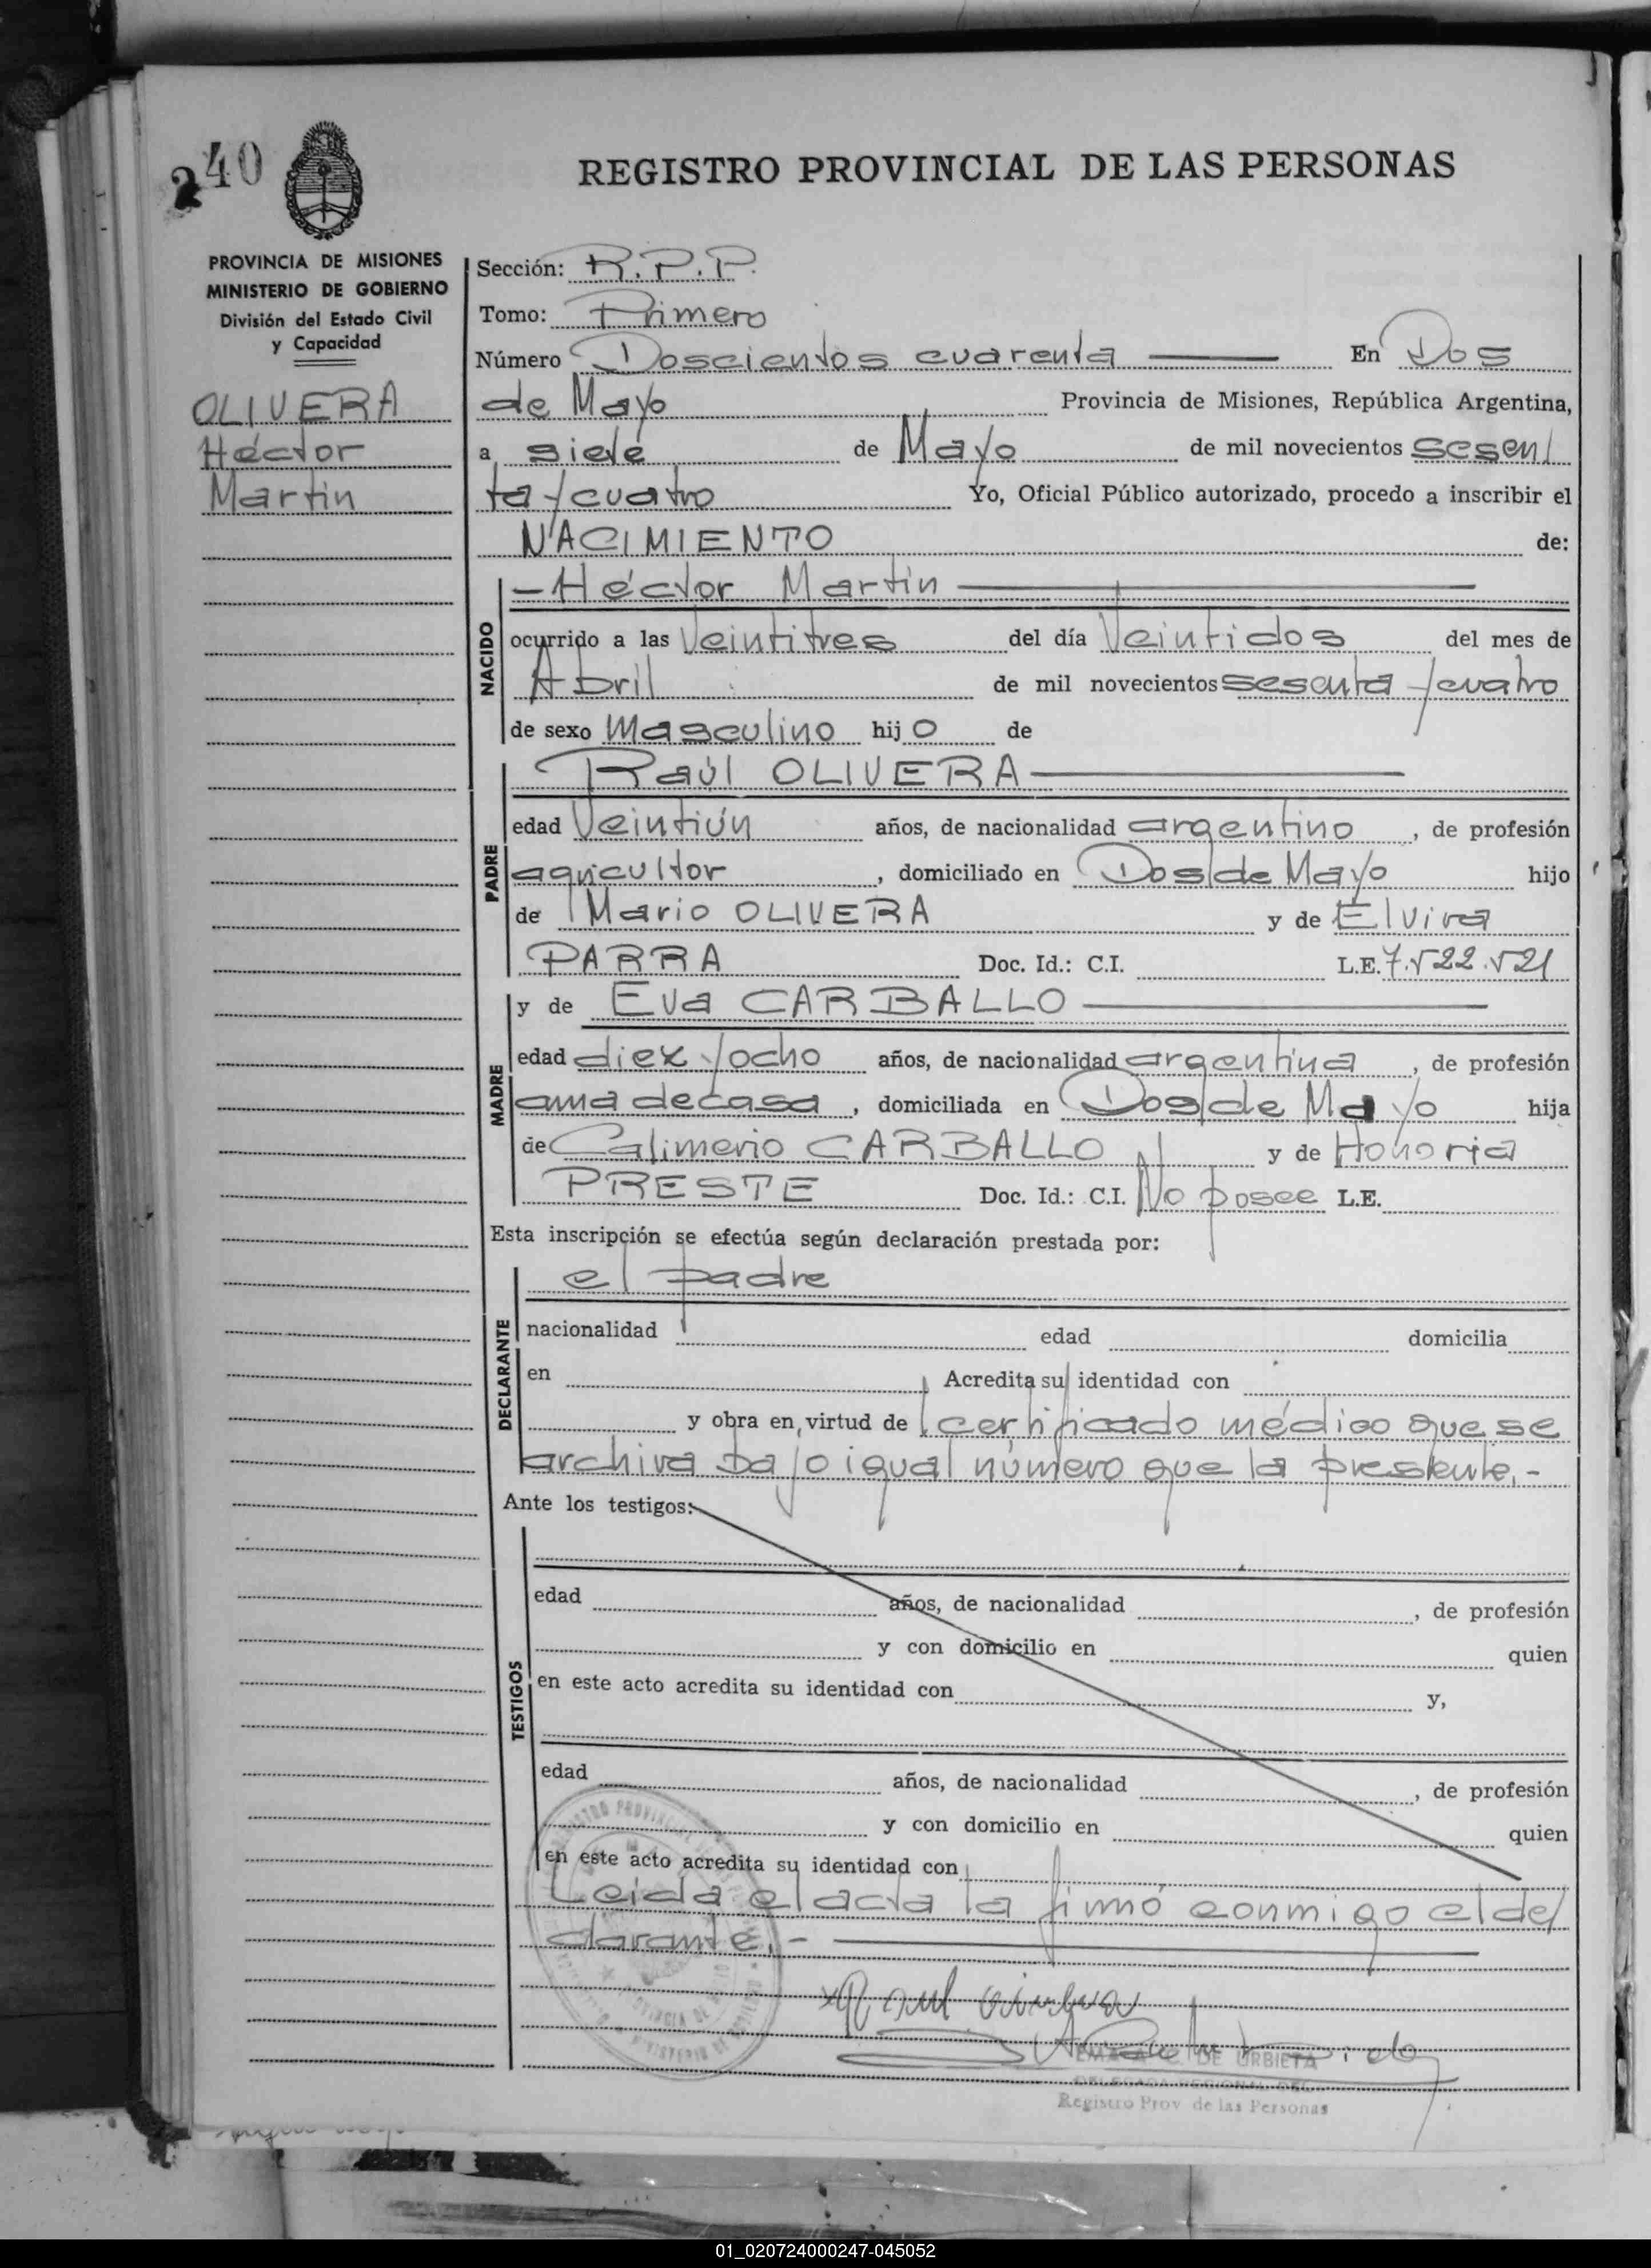 240
REGISTRO PROVINCIAL DE LAS PERSONAS
PROVINCIA DE MISIONES
MINISTERIO DE GOBIERNO
División del Estado Civil
y Capacidad
OLIVERA
Héctor
Martín
Sección: R.P.P.
Tomo: Primero
Número Doscientos cuarenta En Dos
de Mayo Provincia de Misiones, República Argentina,
a siete de Mayo de mil novecientos sesen
ta y cuatro Yo, Oficial Público autorizado, procedo a inscribir el
NACIMIENTO de:
NACIDO
- Héctor Martín
ocurrido a las Veintitres del día Veintidos del mes de
Abril de mil novecientos sesenta y cuatro
de sexo Masculino hijo de
PADRE
Raúl OLIVERA
edad Veintiún años, de nacionalidad argentino, de profesión
agricultor, domiciliado en Dos de Mayo hijo
de Mario OLIVERA y de Elvira
PARRA Doc. Id.: C.I. L.E. 7.522.521
MADRE
y de Eva CARBALLO
edad diez y ocho años, de nacionalidad argentina, de profesión
ama de casa, domiciliada en Dos de Mayo hija
de Calimerio CARBALLO y de Honoria
PRESTE Doc. Id.: C.I. No posee L.E.
Esta inscripción se efectúa según declaración prestada por:
DECLARANTE
el padre
nacionalidad edad domicilia
en Acredita su identidad con
y obra en virtud de certificado médico que se
archiva bajo igual número que la presente.-
Ante los testigos:
TESTIGOS
edad años, de nacionalidad , de profesión
y con domicilio en quien
en este acto acredita su identidad con y,
edad años, de nacionalidad , de profesión
y con domicilio en quien
en este acto acredita su identidad con
Leida el acta la firmó conmigo el de
clarante.-
Raul Olivera
DE URBIETA
DELEGADA REGIONAL DEL
Registro Prov de las Personas
01_020724000247-045052